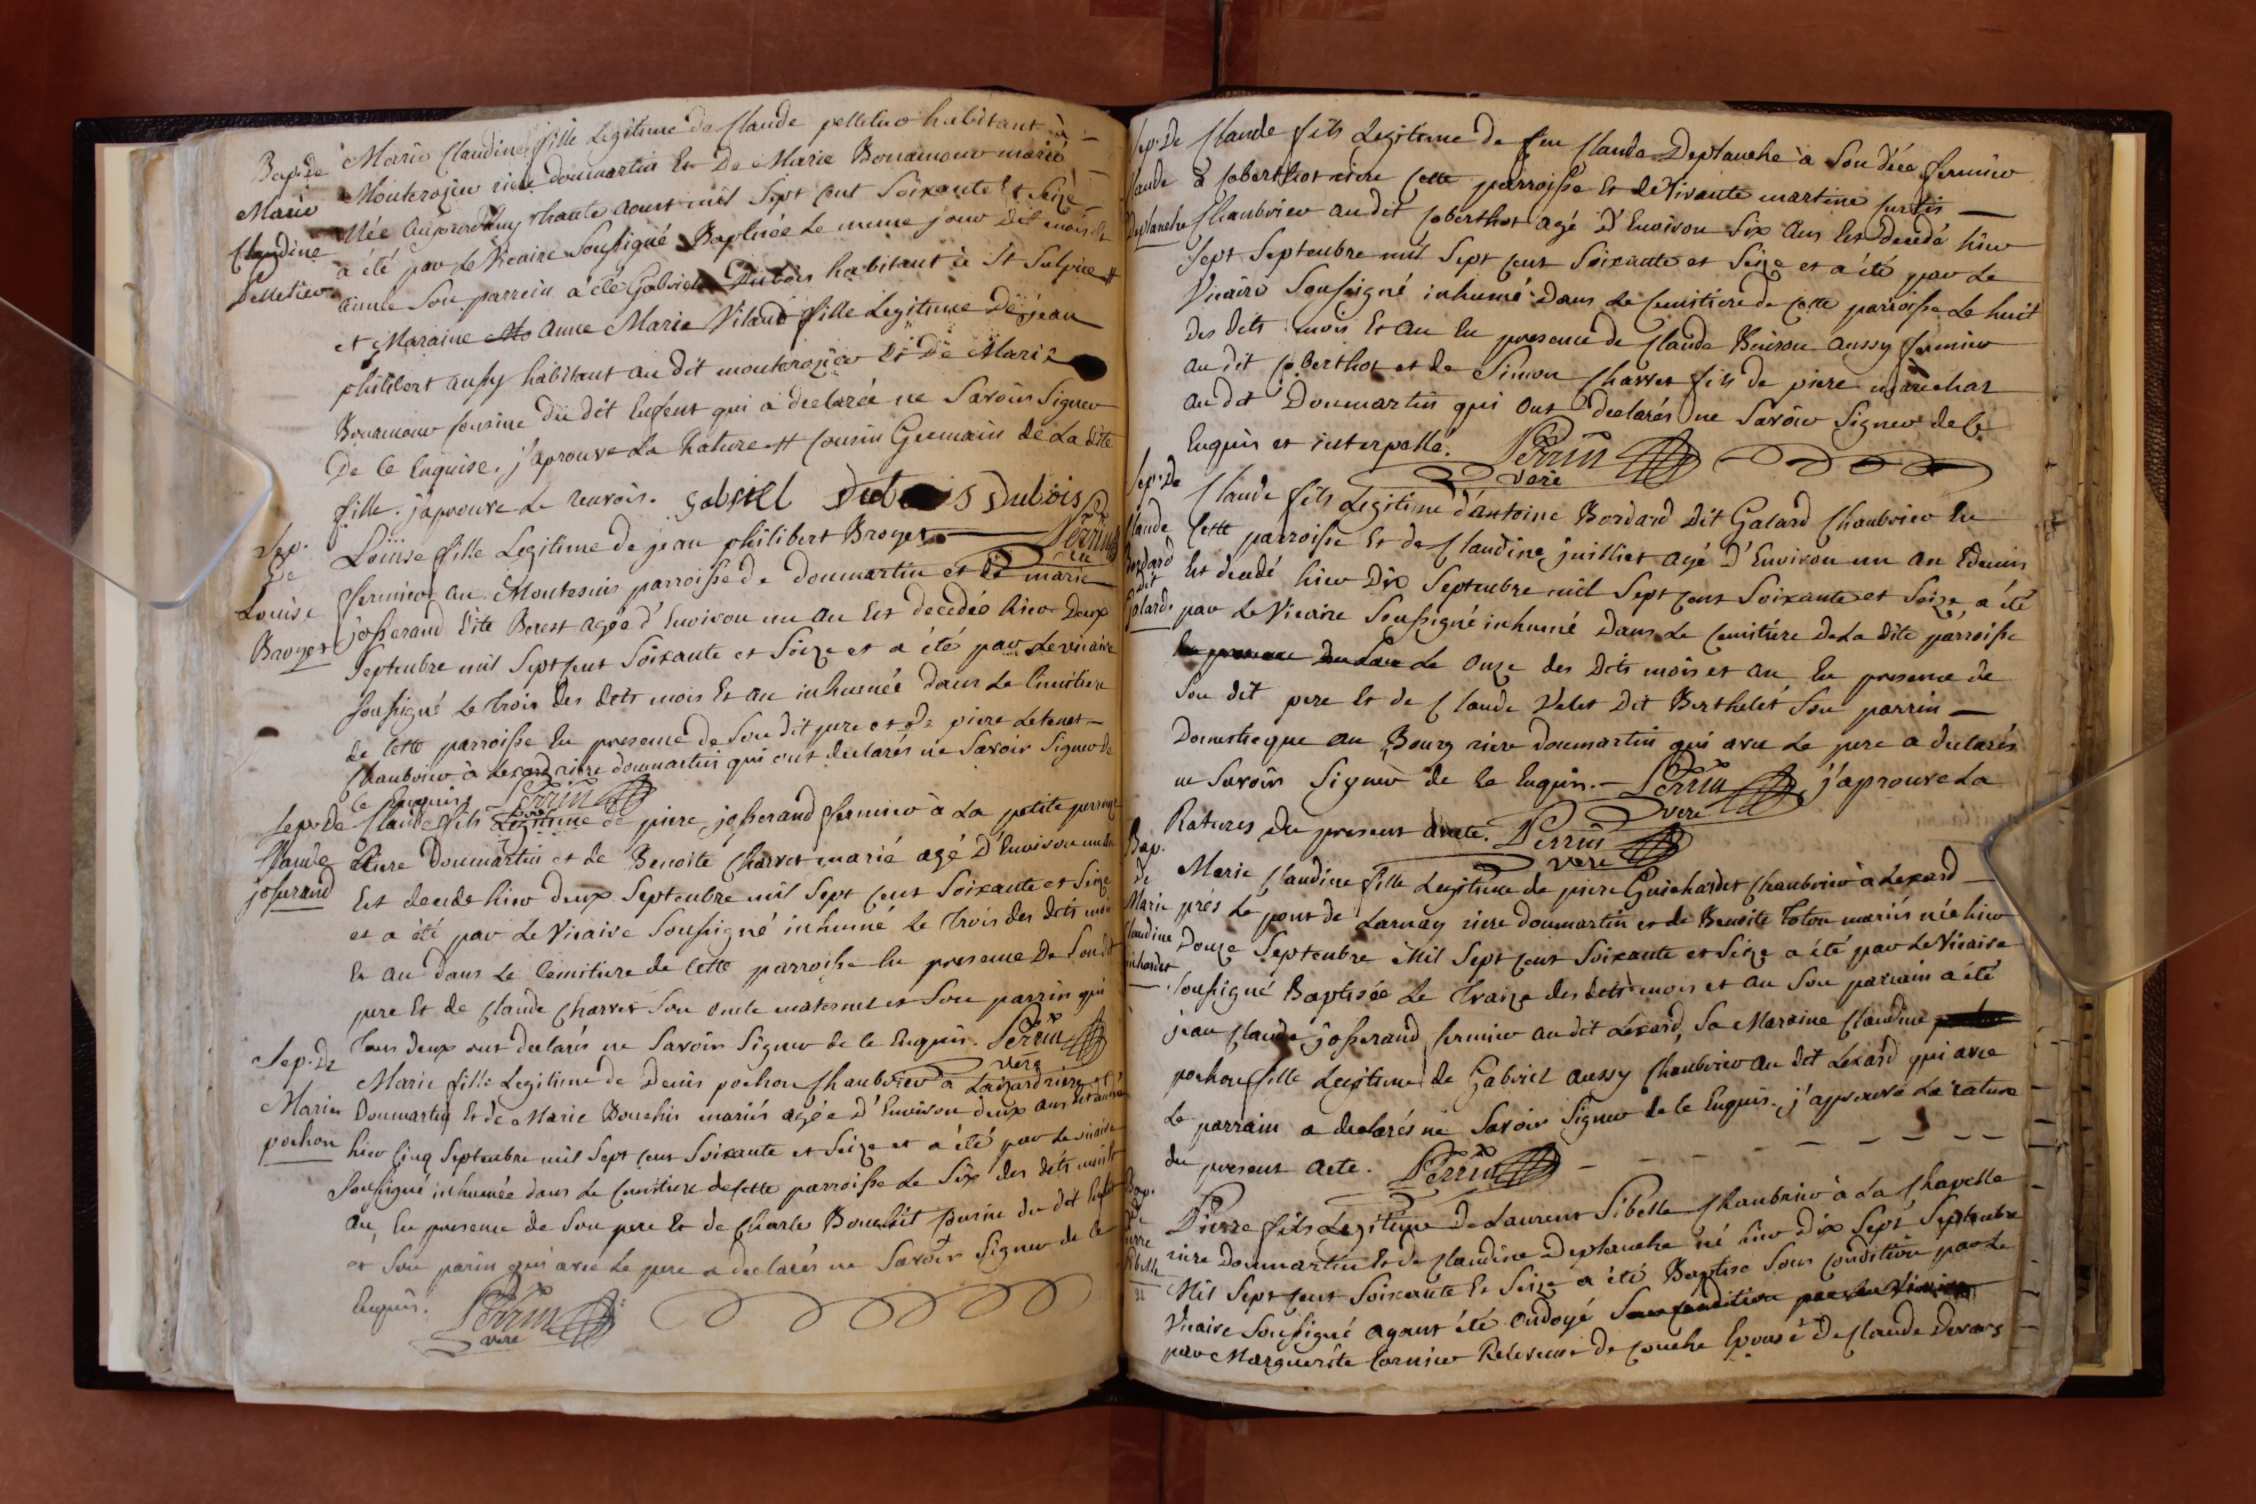 Bap. De
Marie
Claudine
Pelletier
Marie Claudine fille Legitime de Claude pelletier habitant à
Monterojin riere doumartin Et De Marie Bonamour mariés
Née aujourdhuy thante aoust mil Sept Cent Soixante Et Seize
a été par Le Vicaire Soussigné Baptisée Le meme jour Dit mois Et
année Son parrein a été Gabriel Dubois habitant à St Sulpice #
et Maraine Anne Marie Vilard fille Legitime De jean
philibert aussy habitant au dit monterojin Et De Marie
Bonamour Cousine du dit Enfent qui a declarée ne Savoir Signer
De Ce Enquise. j'aprouve La Rature # Cousin Germain de La dite
fille. japrouve Le renvois. gabriel Dubois Dubois
Perrin
vere
Sep.
De
Louise
Broyer
Louise fille Legitime de jean philibert Broyer
fermier au Montesuis parroisse de doumartin et de marie
josserand dite Borest agée d'Environ un an Est decedée hier Deux
Septembre mil Sept Cent Soixante et Seize et a été par Le vicaire
Soussigné Le trois des dits mois Et an inhumée dans Le Cimitiere
de Cette parroisse En presence de Son dit pere et de piere Letenet
Chanbrier à Lexard riere doumartin qui ont declarés ne Savoir Signer de
Ce Enquis Perrin
vere
Sep. De
Claude
josserand
Claude fils Legitime de piere josserand fermier à La petite
Riere Doumartin et de Benoite Charvet marié agé D'Environ un an
Est decede hier deux Septembre mil Sept Cent Soixante et Seize
et a été par Le Vicaire Soussigné inhumé Le trois des dits mois
Et an dans Le Cemitiere de Cette parroisse En presence De Son dit
pere Et de Claude Charvet Son oncle maternel et Son parrin qui
tous deux ont declarés ne Savoir Signer de Ce Enquis. Perrin
vere
Sep. De
Marie
pochon
Marie fille Legitime de Denis pochon Chanbrier à Lexard riere
Doumartin Et de Marie Bouchis mariés agée D'Environ deux ans
hier Cinq Septembre mil Sept Cent Soixante et Seize et a été par Le vicaire
Soussigné inhumée dans Le Cemitiere de Cette parroisse Le Six des dits mois Et
an, En presence de Son pere Et de Charle Bouchit Cousin du dit
et Son parin qui avec Le pere a declarés ne Savoir Signer de Ce
Enquis. Perrin
vere
Sep. De
Claude
Deplanche
Claude fils Legitime de feu Claude Deplanche à Son décé fermier
à Coberthot riere Cette parroisse Et de Vivante martine Curtis
Chanbrier au dit Coberthot agé D'Environ Six Ans Est Decedé hier
Sept Septembre mil Sept Cent Soixante et Seize et a été par Le
Vicaire Soussigné inhumé Dans Le Cemitiere de Cette parroisse Le huit
Des dits mois Et An En presence de Claude Buiron aussy fermier
au dit Coberthot et de Simon Charvet fils de piere marechal
au dit Doumartin qui Ont declarés ne Savoir Signer de Ce
Enquis et interpellé. Perrin
vere
Sep. De
Claude
Bordard
dit
Galard
Claude fils Legitime d'Antoine Bordard Dit Galard Chanbrier En
Cette parroisse Et de Claudine juilliet agé D'Environ un an Edemis
Est decedé hier Dix Septembre mil Sept Cent Soixante et Seize a été
par Le Vicaire Soussigné inhumé Dans Le Cemitiere De La dite parroisse
Le Onze des Dits mois et an En presence de
Son dit pere Et de Claude Velet Dit Berthelet Son parrin
Domesticque au Bourg riere doumartin qui avec Le pere a declarés
ne Savoir Signer de Ce Enquis. Perrin j'aprouve La
vere
Ratures du present acte. Perrin
vere
Bap.
De
Marie
Claudine
Guichardet
Marie Claudine fille Legitime de piere Guichardet Chanbrier à Lexard
prés Le pont de Larnay riere doumartin et de Benoite Toton mariés née hier
Douze Septembre Mil Sept Cent Soixante et Seize a été par Le Vicaire
Soussigné Baptisée Le Traize des dits mois et an Son parrain a été
jean Claude josserand fermier au dit Lexard, Sa Maraine Claudine
pochon fille Legitime de Gabriel aussy Chanbrier au dit Lexard qui avec
Le parrain a declarés ne Savoir Signer de Ce Enquis. j'approuve La rature
du present acte. Perrin
Bap.
De
Pierre
Sibelle
Pierre fils Legitime De Laurent Sibelle Chanbrier à La Chapelle
riere Doumartin Et de Claudine Deplanche né hier Dix Sept Septembre
Mil Sept Cent Soixante Et Seize a été Baptisé Sous Condition par Le
Vicaire Soussigné ayant été Ondoyé Sous Condition par Le Vicaire
par Marguerite Cornier Releveuse de Couche Epouse De Claude Devars